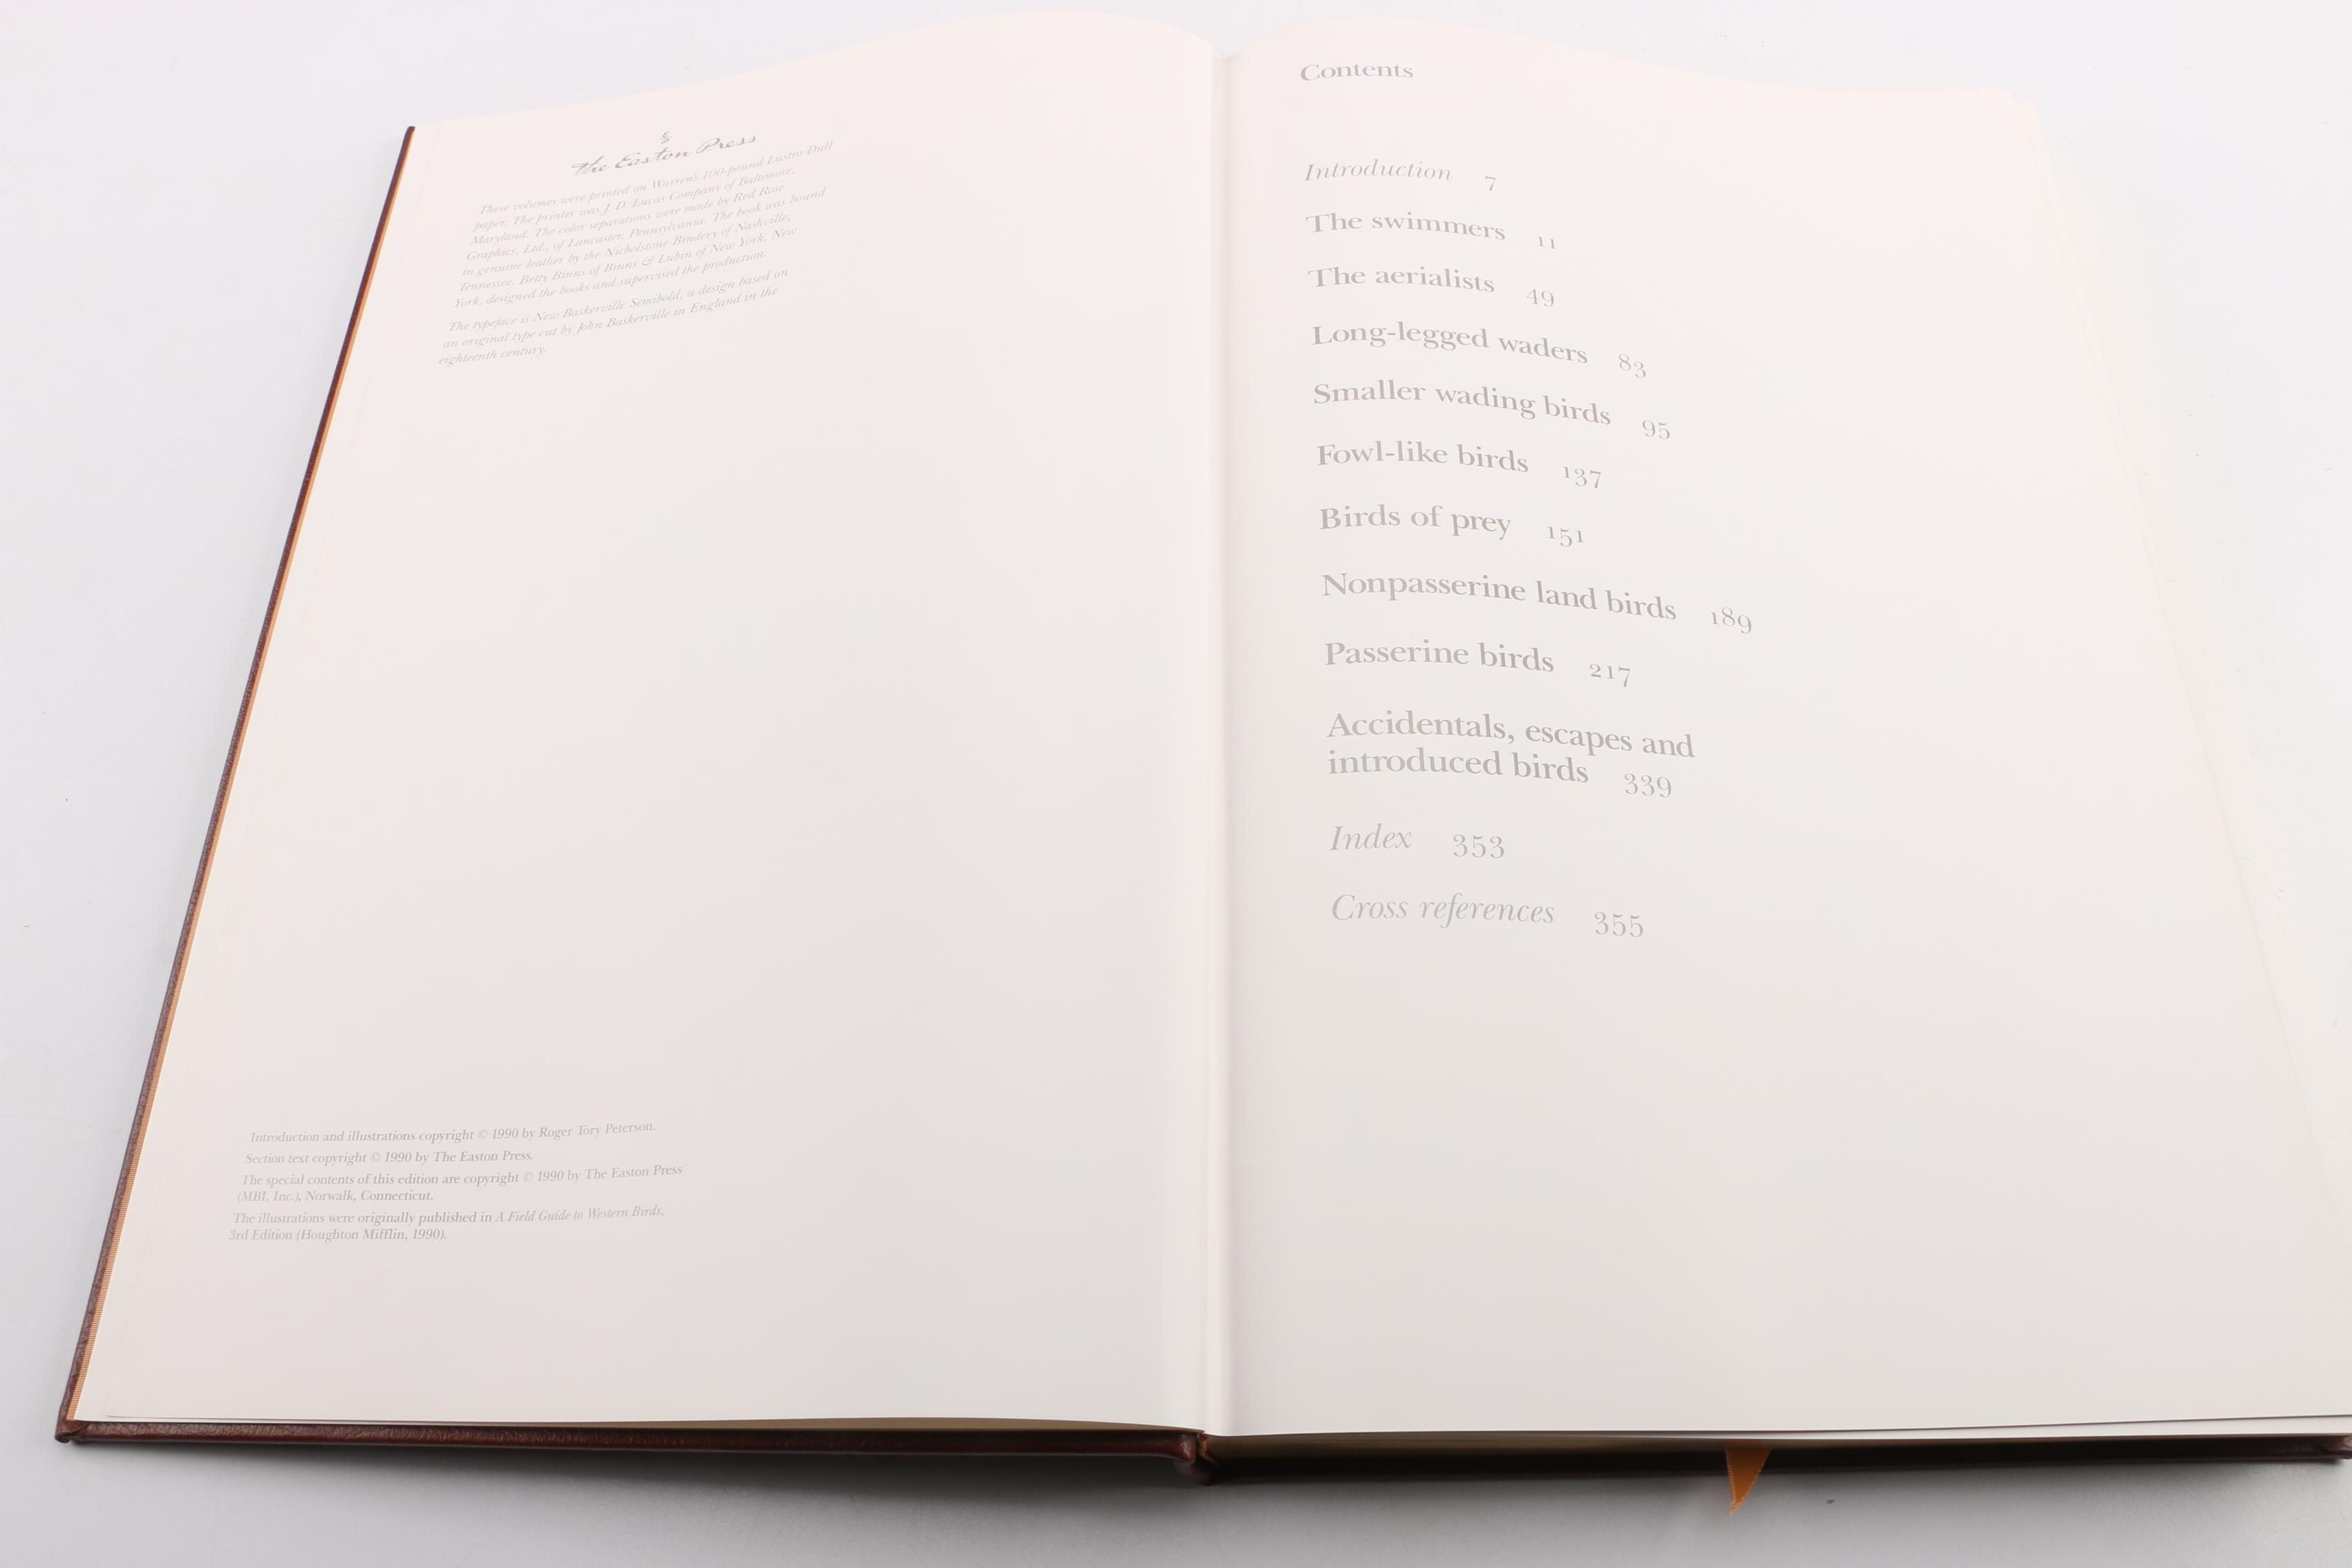 The Easton Press
These volumes were printed on Warren's 100-pound Lustro Dull
paper. The printer was J. D. Lucas Company of Baltimore,
Maryland. The color separations were made by Red Rose
Graphics, Ltd., of Lancaster, Pennsylvania. The book was bound
in genuine leather by the Nicholstone Bindery of Nashville,
Tennessee. Betty Binns of Binns & Lubin of New York, New
York, designed the books and supervised the production.
The typeface is New Baskerville Semibold, a design based on
an original type cut by John Baskerville in England in the
eighteenth century.
Introduction and illustrations copyright © 1990 by Roger Tory Peterson.
Section text copyright © 1990 by The Easton Press.
The special contents of this edition are copyright © 1990 by The Easton Press
(MBI, Inc.), Norwalk, Connecticut.
The illustrations were originally published in A Field Guide to Western Birds,
3rd Edition (Houghton Mifflin, 1990).
Contents
Introduction 7
The swimmers 11
The aerialists 49
Long-legged waders 83
Smaller wading birds 95
Fowl-like birds 137
Birds of prey 151
Nonpasserine land birds 189
Passerine birds 217
Accidentals, escapes and
introduced birds 339
Index 353
Cross references 355